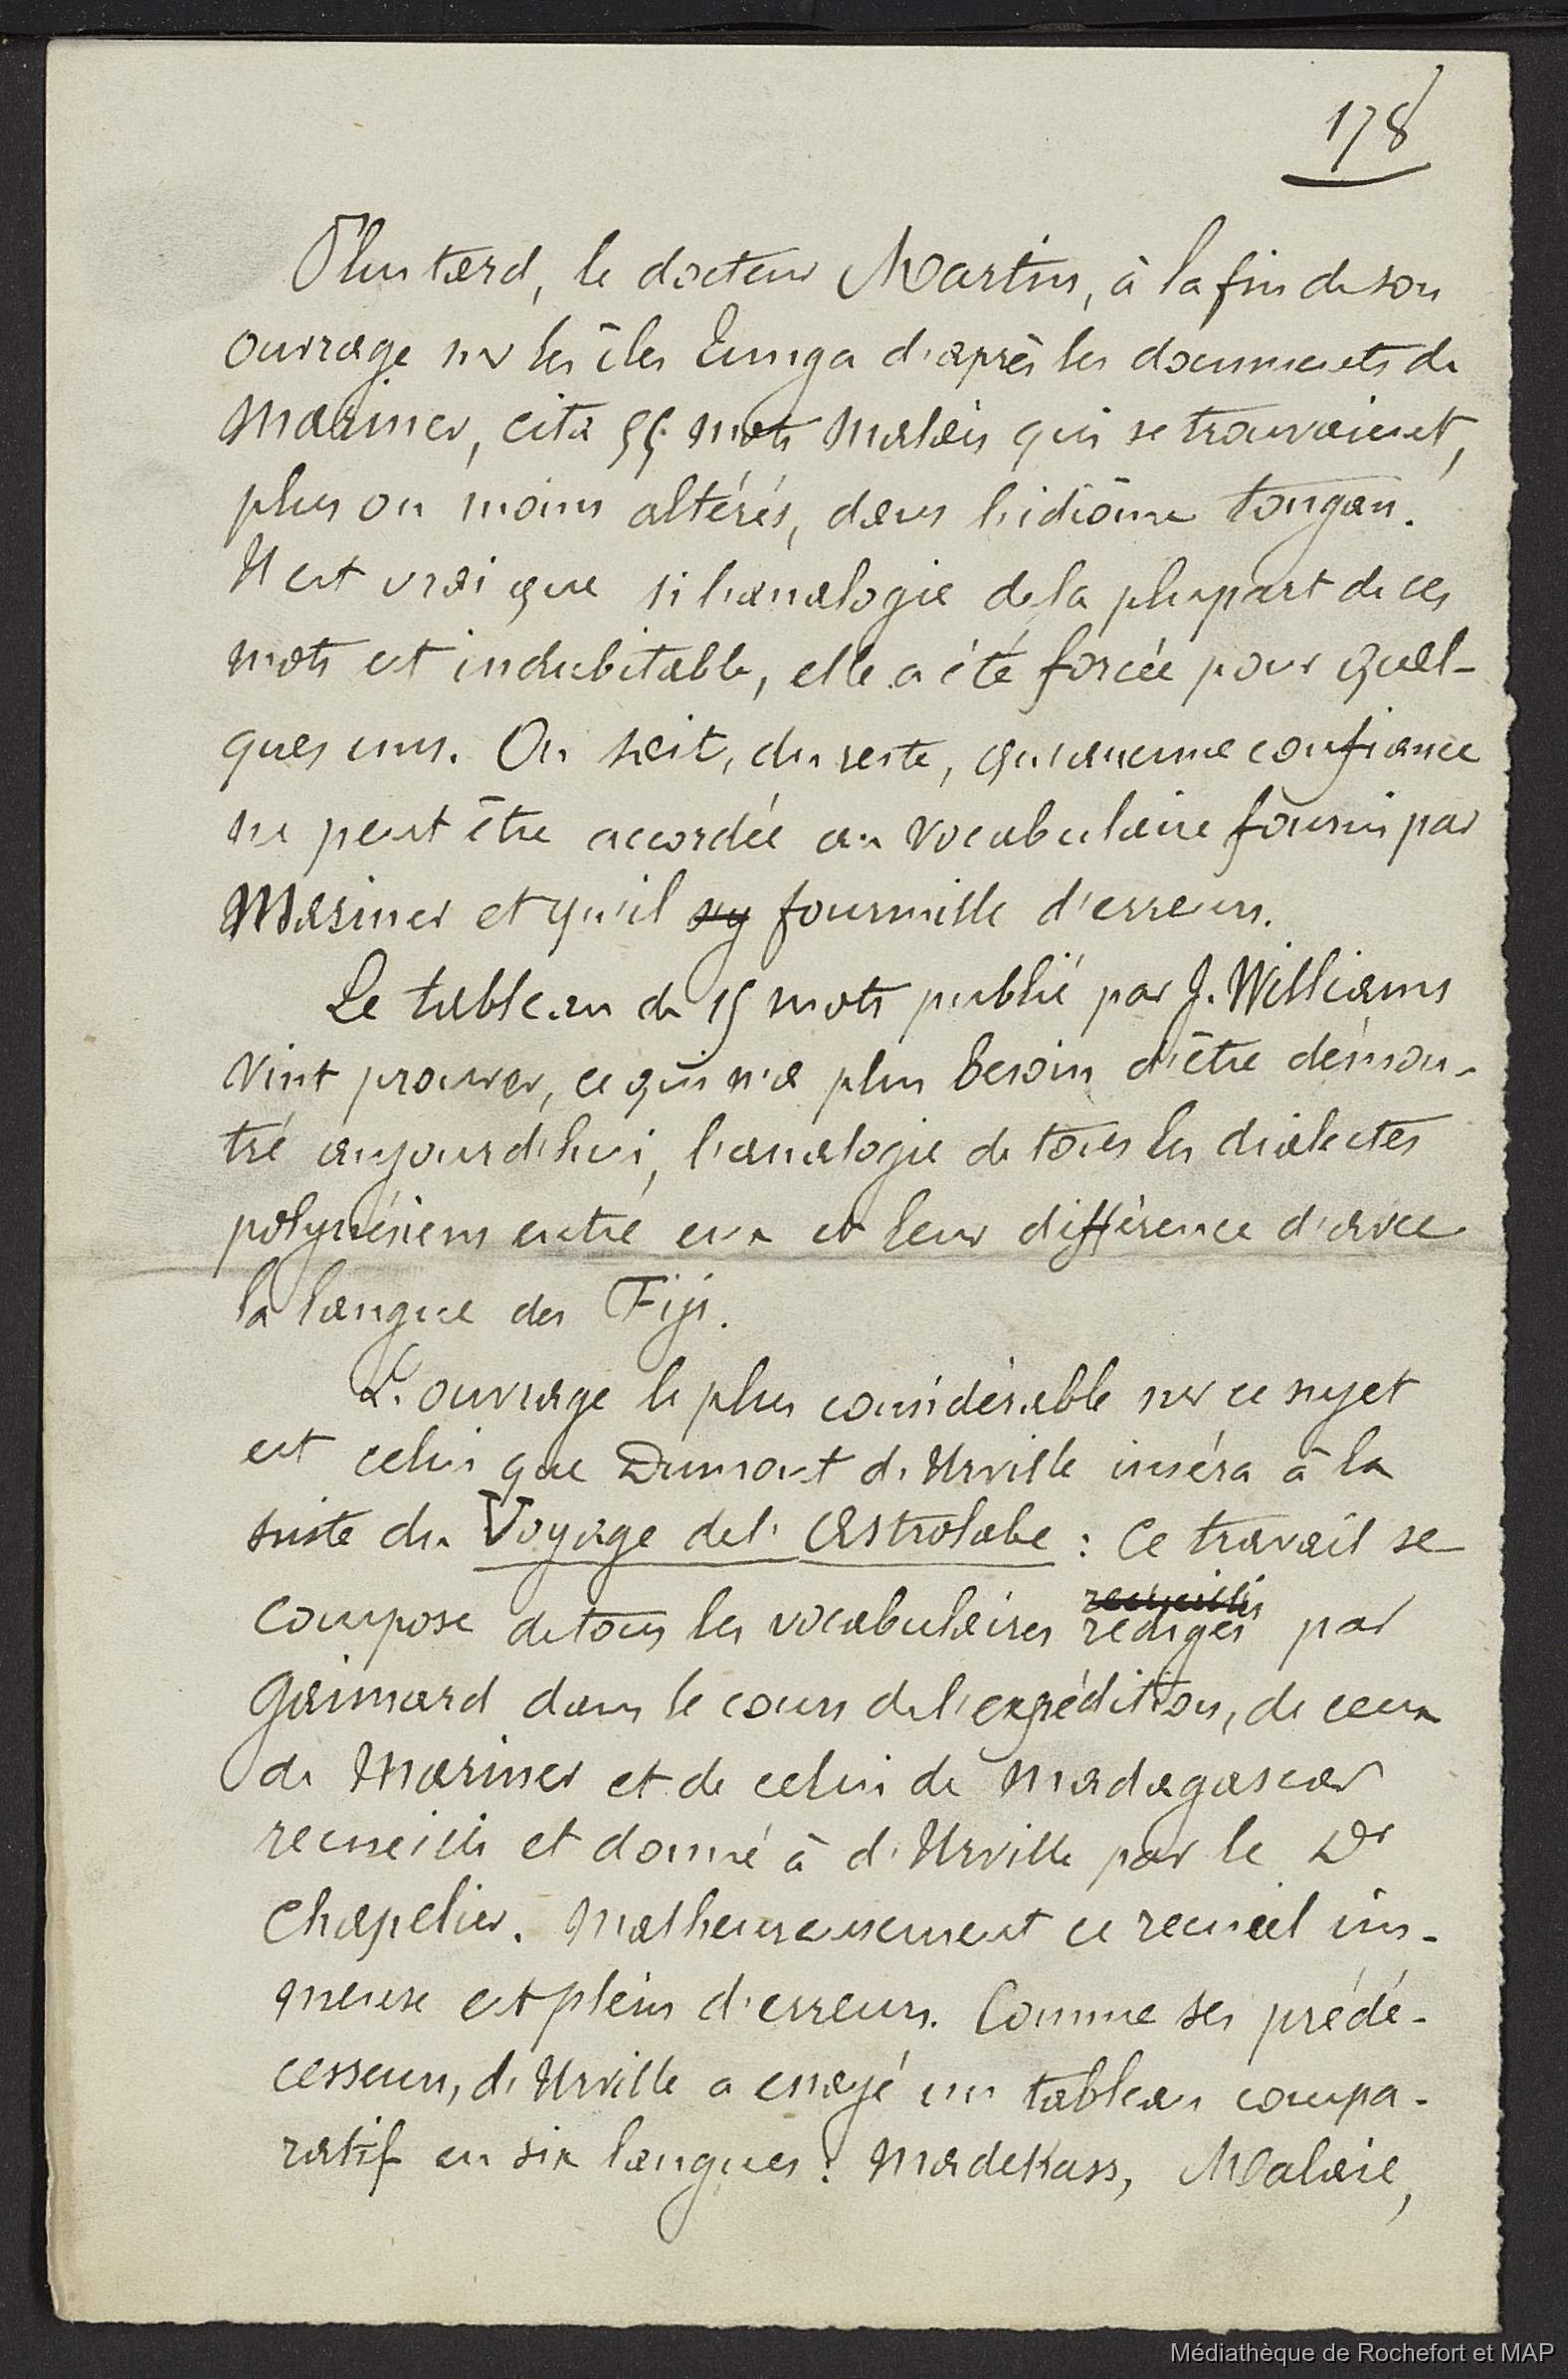 178
Plus tard, le docteur Martin, à la fin de son
ouvrage sur les îles Tunga d'après les documents de
Mariner, cita 55 mots malais qui se trouvaient,
plus ou moins altérés, dans l'idiôme tongan.
Il est vrai que si l'analogie de la plupart de ces
mots est indubitable, elle a été forcée pour quel-
ques uns. On sait, du reste, qu'aucune confiance
ne peut être accordée au vocabulaire fourni par
Mariner et qu'il s'y fourmille d'erreurs.
Le tableau de 15 mots publié par J. Williams
vint prouver, ce qui n'a plus besoin d'être démon-
tré aujourd'hui, l'analogie de tous les dialectes
polynésiens entre eux et leur différence d'avec
la langue des Fiji.
L'ouvrage le plus considérable sur ce sujet
est celui que Dumont d'Urville inséra à la
suite du Voyage de l'Astrolabe : Ce travail se
recueillis
compose de tous les vocabulaires rédigés par
Gaimard dans le cours de l'expédition, de ceux
de Mariner et de celui de Madagascar
recueilli et donné à d'Urville par le Dr
Chapelier. Malheureusement ce recueil
est plein d'erreurs. Comme ses prédé-
cesseurs, d'Urville a essayé un tableau compa-
ratif en six langues : Madekass, Malaie,
Médiathèque de Rochefort et MAP